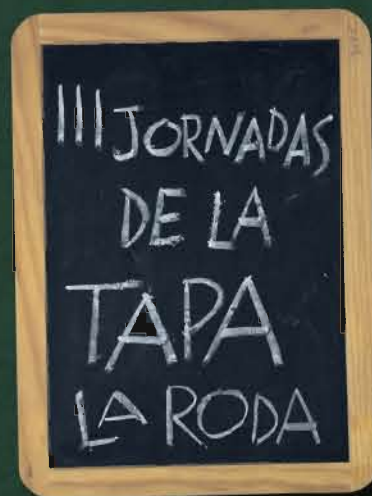 III JORNADAS
DE LA
TAPA
LA RODA